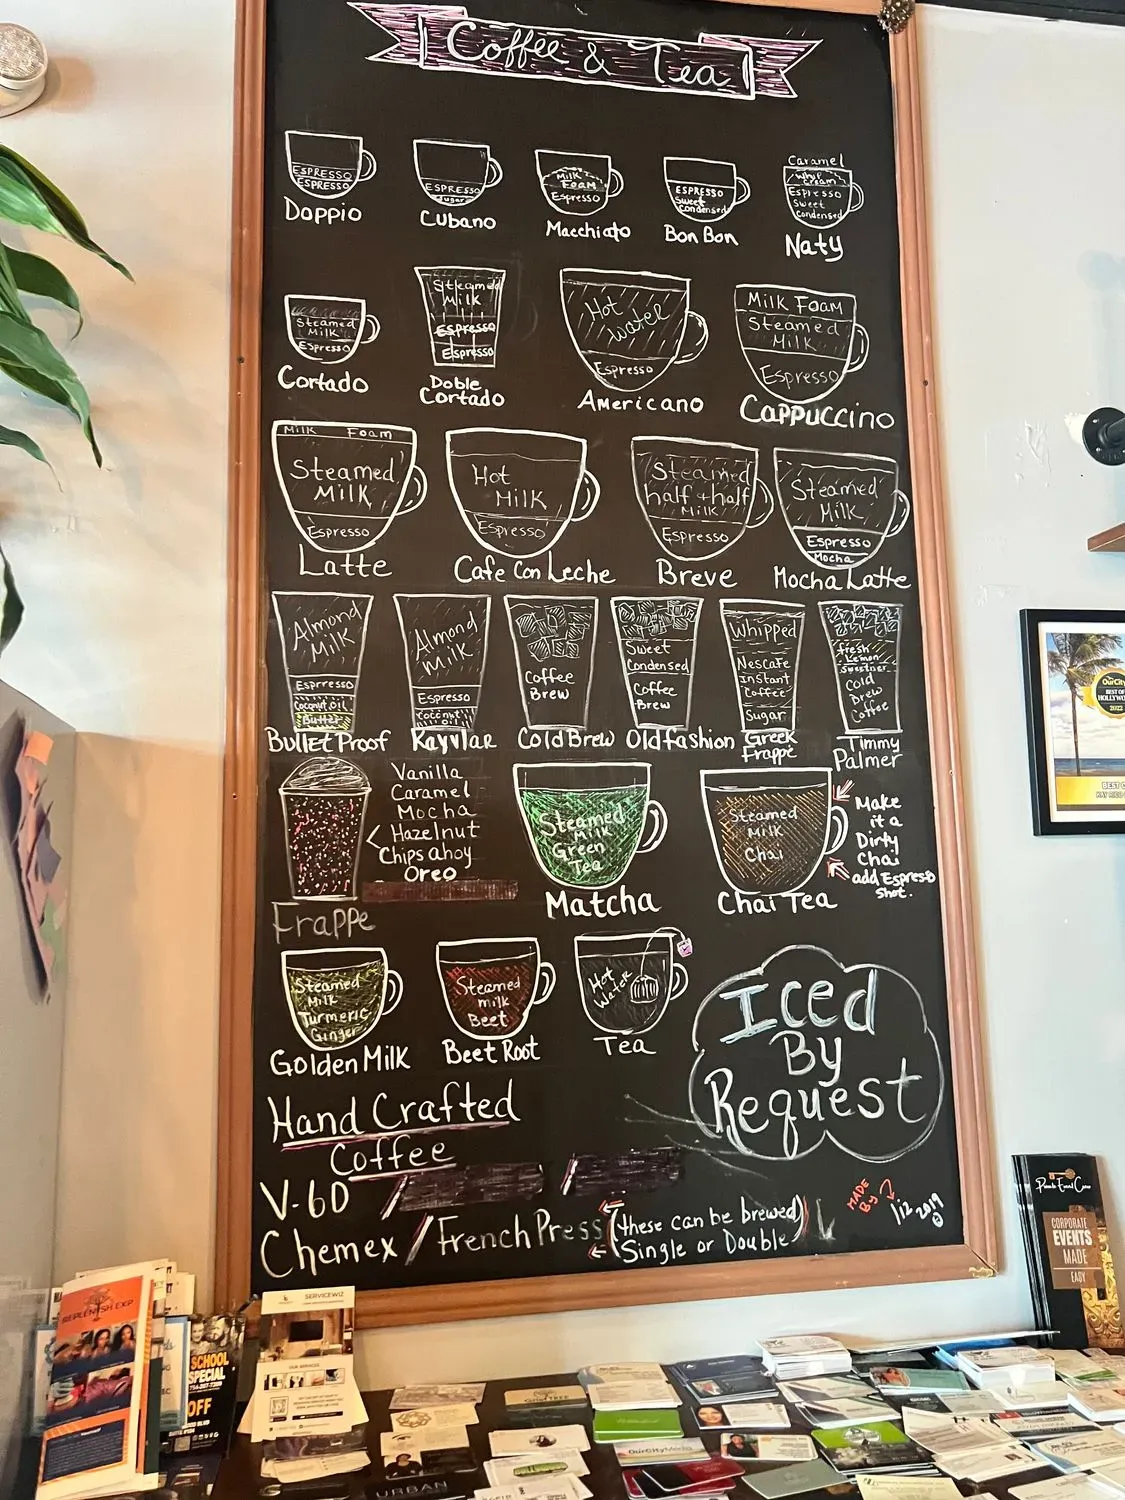 Coffee & Tea
ESPRESSO
ESPRESSO
Doppio
ESPRESSO
Sugar
Cubano
Milk
Foam
Espresso
Macchiato
ESPRESSO
Sweet
Condensed
Bon Bon
Caramel
Whip
Cream
Espresso
Sweet
Condensed
Naty
Steamed
Milk
Espresso
Cortado
Steamed
Milk
Espresso
Espresso
Doble
Cortado
Hot
Water
Espresso
Americano
Milk Foam
Steamed
Milk
Espresso
Cappuccino
Milk Foam
Steamed
Milk
Espresso
Latte
Hot
Milk
Espresso
Cafe Con Leche
Steamed
half + half
Milk
Espresso
Breve
Steamed
Milk
Espresso
Mocha
Mocha Latte
Almond
Milk
Esprresso
Coconut oil
Butter
Bullet Proof
Almond
Milk
Espresso
Coconut
oil
Kayvlar
Coffee
Brew
Cold Brew
Sweet
Condensed
Coffee
Brew
Old fashion
Whipped
Nescafe
Instant
Coffee
Sugar
Greek
Frappe
fresh
Lemon
Sweetner
Cold
Brew
Coffee
Timmy
Palmer
Vanilla
Caramel
Mocha
Hazelnut
Chips ahoy
Oreo
Frappe
Steamed
Milk
Green
Tea
Matcha
Steamed
Milk
Chai
Chai Tea
Make
it a
Dirty
Chai
add Espresso
Shot.
Steamed
Milk
Turmeric
Ginger
Golden Milk
Steamed
milk
Beet
Beet Root
Hot
Water
Tea
Iced
By
Request
Hand Crafted
Coffee
V-60 /
/
Chemex / French Press
(these can be brewed)
Single or Double
MADE
By
liz 2019
REPLENISH EXP
SCHOOL
SPECIAL
OFF
SERVICEWIZ
OUR SERVICES
OurCity
BEST OF
HOLLYWOOD
2022
CORPORATE
EVENTS
MADE
EASY
OurCityMedia
URBAN